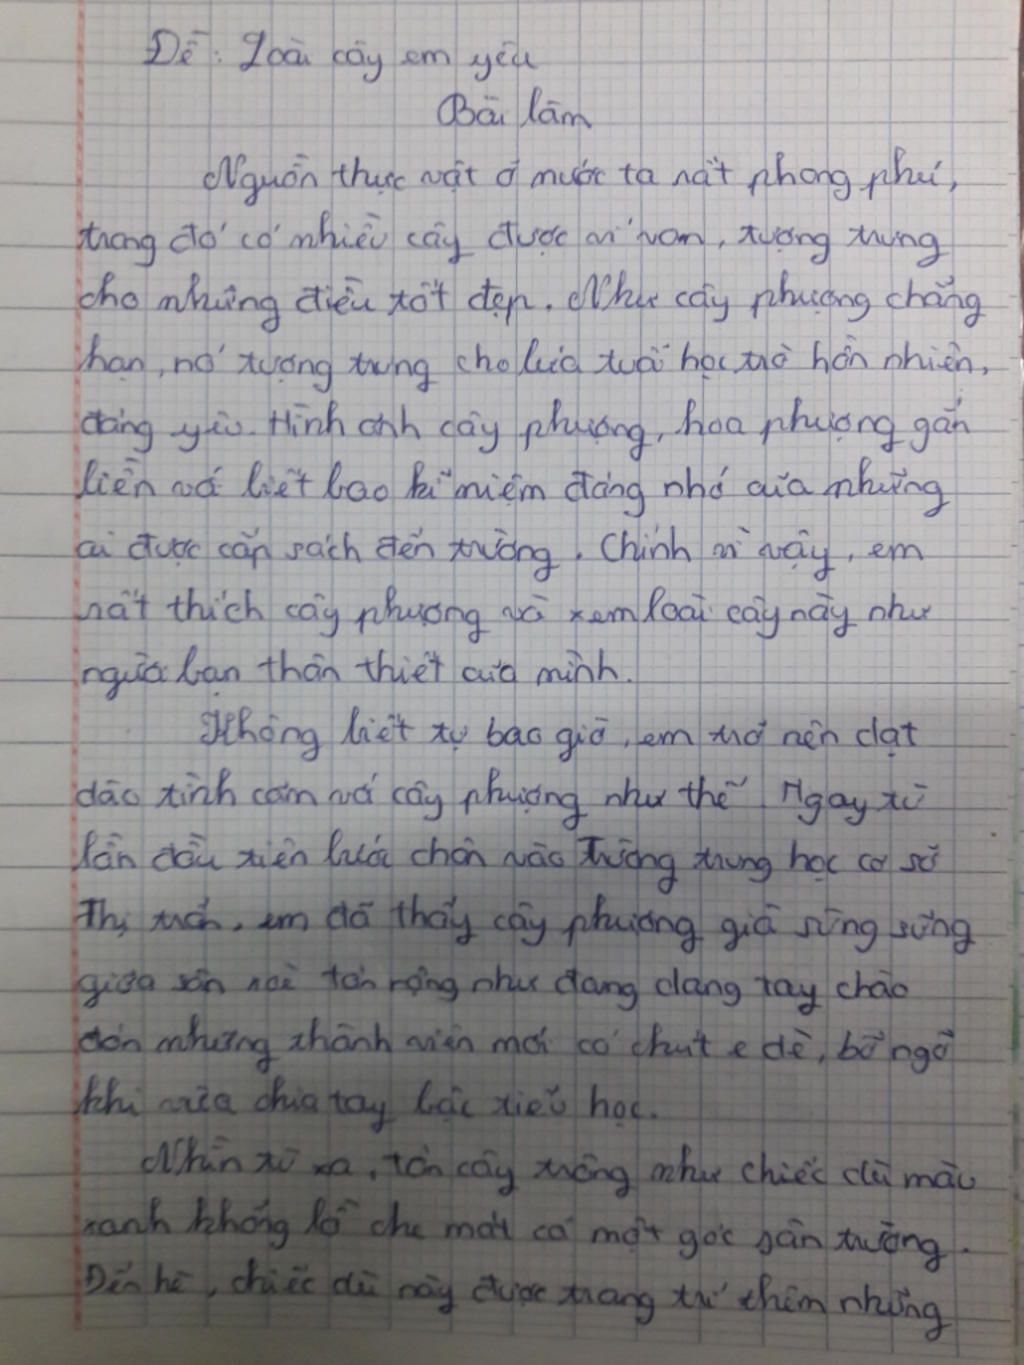 Đề: Loài cây em yêu
Bài làm
Nguồn thực vật ở nước ta rất phong phú,
trong đó có nhiều cây được ví von, tượng trưng
cho những điều tốt đẹp. Như cây phượng chẳng
hạn, nó tượng trưng cho lứa tuổi học trò hồn nhiên,
đáng yêu. Hình ảnh cây phượng, hoa phượng gắn
liền với biết bao kỉ niệm đáng nhớ của những
ai được cắp sách đến trường. Chính vì vậy, em
rất thích cây phượng và xem loài cây này như
người bạn thân thiết của mình.
Không biết tự bao giờ, em trở nên dạt
dào tình cảm với cây phượng như thế. Ngay từ
lần đầu tiên bước chân vào Trường trung học cơ sở
Thị trấn, em đã thấy cây phượng già sừng sững
giữa sân xoè tán rộng như đang dang tay chào
đón những thành viên mới có chút e dè, bỡ ngỡ
khi vừa chia tay bậc tiểu học.
Nhìn từ xa, tán cây trông như chiếc dù màu
xanh khổng lồ che mát cả một góc sân trường.
Đến hè, chiếc dù này được trang trí thêm những